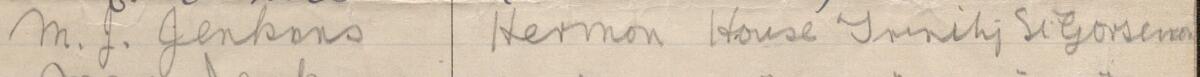 M. J. Jenkins Hermon House Trinity St Gorseinon